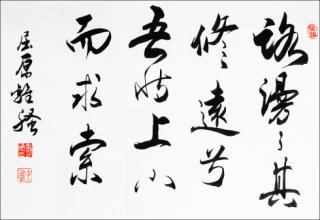 路漫々其
修遠兮
吾将上下
而求索
屈原離騷